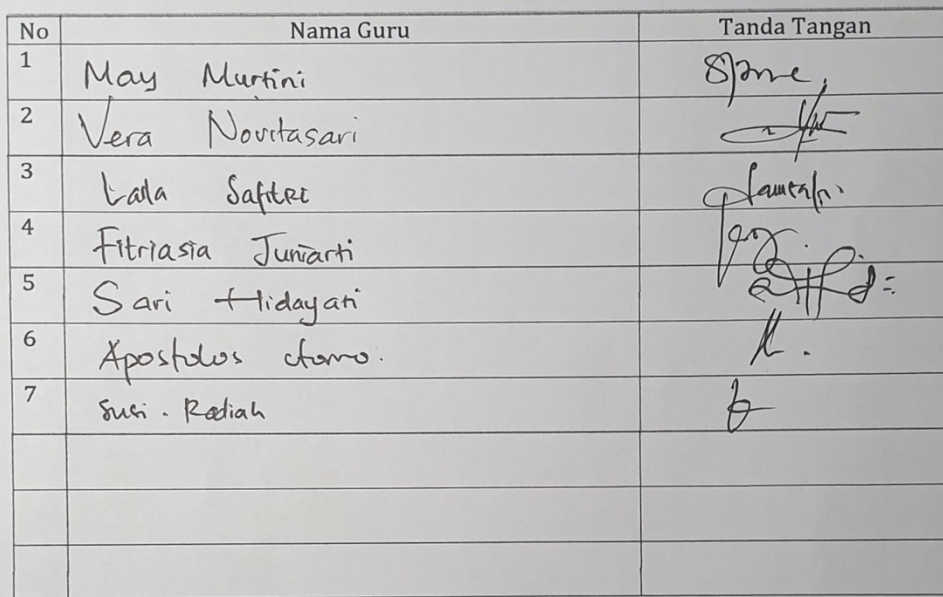 No Nama Guru Tanda Tangan
1 May Murtini
2 Vera Novitasari
3 Lada Safitri
4 Fitriasia Juniarti
5 Sari Hidayati
6 Apostolos
7 Susi . Rodiah